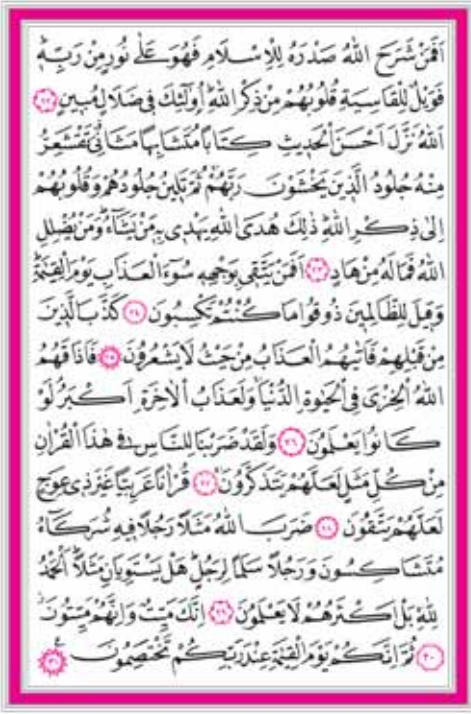 اَفَمَنْ شَرَحَ اللّٰهُ صَدْرَهُ لِلْاِسْلَامِ فَهُوَ عَلٰى نُورٍ مِنْ رَبِّهٖؕ
فَوَيْلٌ لِلْقَاسِيَةِ قُلُوبُهُمْ مِنْ ذِكْرِ اللّٰهِؕ اُو۬لٰٓئِكَ فٖي ضَلَالٍ مُبٖينٍ ﴿٢٢﴾
اَللّٰهُ نَزَّلَ اَحْسَنَ الْحَدٖيثِ كِتَابًا مُتَشَابِهًا مَثَانِيَ تَقْشَعِرُّ
مِنْهُ جُلُودُ الَّذٖينَ يَخْشَوْنَ رَبَّهُمْۚ ثُمَّ تَلٖينُ جُلُودُهُمْ وَقُلُوبُهُمْ
اِلٰى ذِكْرِ اللّٰهِؕ ذٰلِكَ هُدَى اللّٰهِ يَهْدٖي بِهٖ مَنْ يَشَٓاءُؕ وَمَنْ يُضْلِلِ
اللّٰهُ فَمَا لَهُ مِنْ هَادٍ ﴿٢٣﴾ اَفَمَنْ يَتَّقٖي بِوَجْهِهٖ سُٓوءَ الْعَذَابِ يَوْمَ الْقِيٰمَةِؕ
وَقٖيلَ لِلظَّالِمٖينَ ذُوقُوا مَا كُنْتُمْ تَكْسِبُونَ ﴿٢٤﴾ كَذَّبَ الَّذٖينَ
مِنْ قَبْلِهِمْ فَاَتٰيهُمُ الْعَذَابُ مِنْ حَيْثُ لَا يَشْعُرُونَ ﴿٢٥﴾ فَاَذَاقَهُمُ
اللّٰهُ الْخِزْيَ فِي الْحَيٰوةِ الدُّنْيَاۚ وَلَعَذَابُ الْاٰخِرَةِ اَكْبَرُۢ لَوْ
كَانُوا يَعْلَمُونَ ﴿٢٦﴾ وَلَقَدْ ضَرَبْنَا لِلنَّاسِ فٖي هٰذَا الْقُرْاٰنِ
مِنْ كُلِّ مَثَلٍ لَعَلَّهُمْ يَتَذَكَّرُونَۚ ﴿٢٧﴾ قُرْاٰنًا عَرَبِيًّا غَيْرَ ذٖي عِوَجٍ
لَعَلَّهُمْ يَتَّقُونَ ﴿٢٨﴾ ضَرَبَ اللّٰهُ مَثَلًا رَجُلًا فٖيهِ شُرَكَٓاءُ
مُتَشَاكِسُونَ وَرَجُلًا سَلَمًا لِرَجُلٍؕ هَلْ يَسْتَوِيَانِ مَثَلًاؕ اَلْحَمْدُ
لِلّٰهِۚ بَلْ اَكْثَرُهُمْ لَا يَعْلَمُونَ ﴿٢٩﴾ اِنَّكَ مَيِّتٌ وَاِنَّهُمْ مَيِّتُونَؗ
﴿٣٠﴾ ثُمَّ اِنَّكُمْ يَوْمَ الْقِيٰمَةِ عِنْدَ رَبِّكُمْ تَخْتَصِمُونَ ﴿٣١﴾